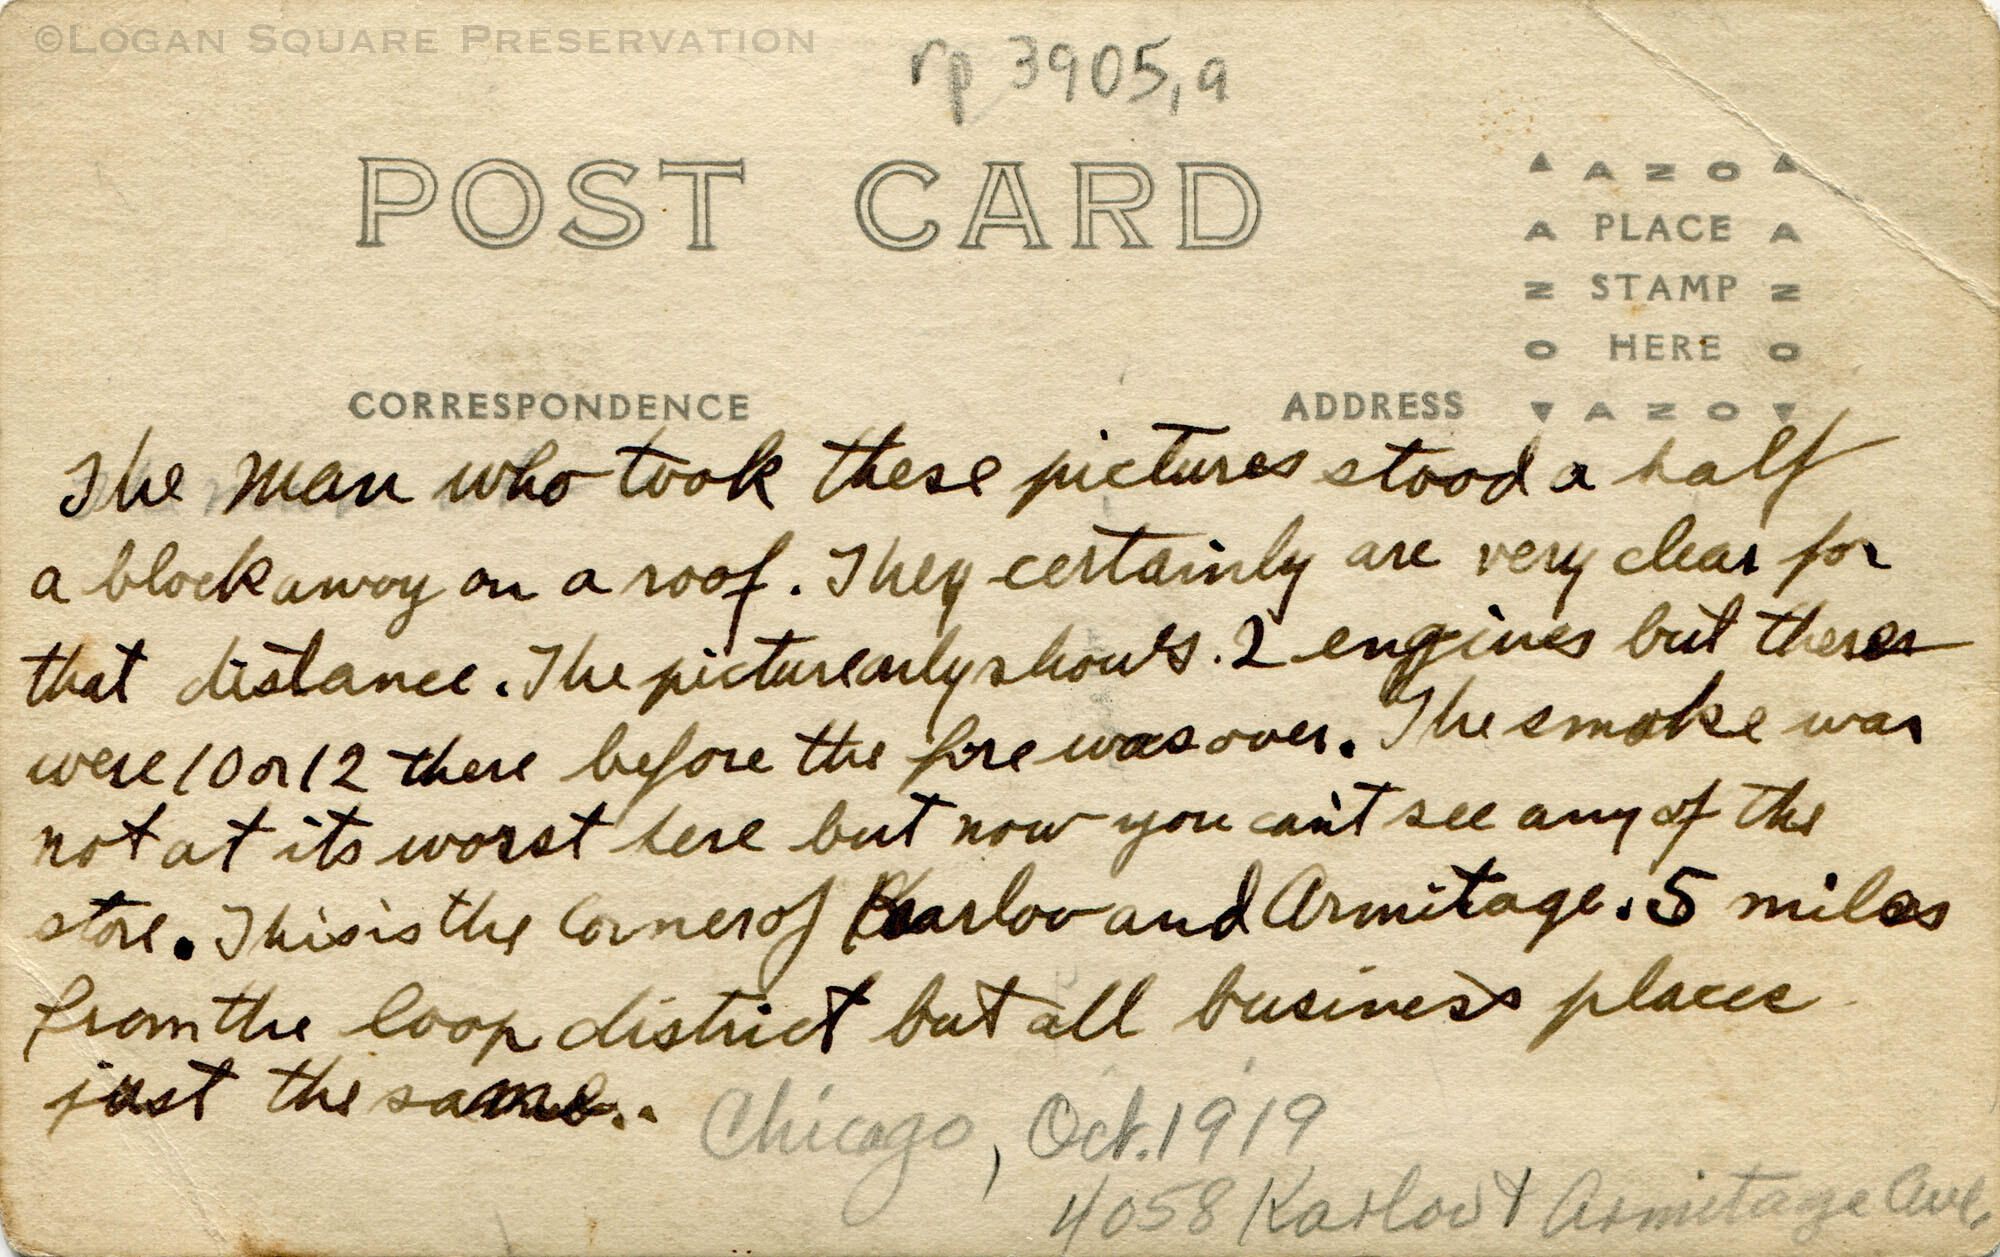 ©LOGAN SQUARE PRESERVATION
rp 3905,a
POST CARD
AZO
PLACE
STAMP
HERE
AZO
CORRESPONDENCE
ADDRESS
The man who took these pictures stood a half
a block away on a roof. They certainly are very clear for
that distance. The picture only shows 2 engines but there
were 10 or 12 there before the fire was over. The smoke was
not at its worst here but now you can't see any of the
store. This is the Corner of Karlov and Armitage. 5 miles
from the loop district but all business places
just the same.
Chicago, Oct. 1919
4058 Karlov & Armitage Ave.